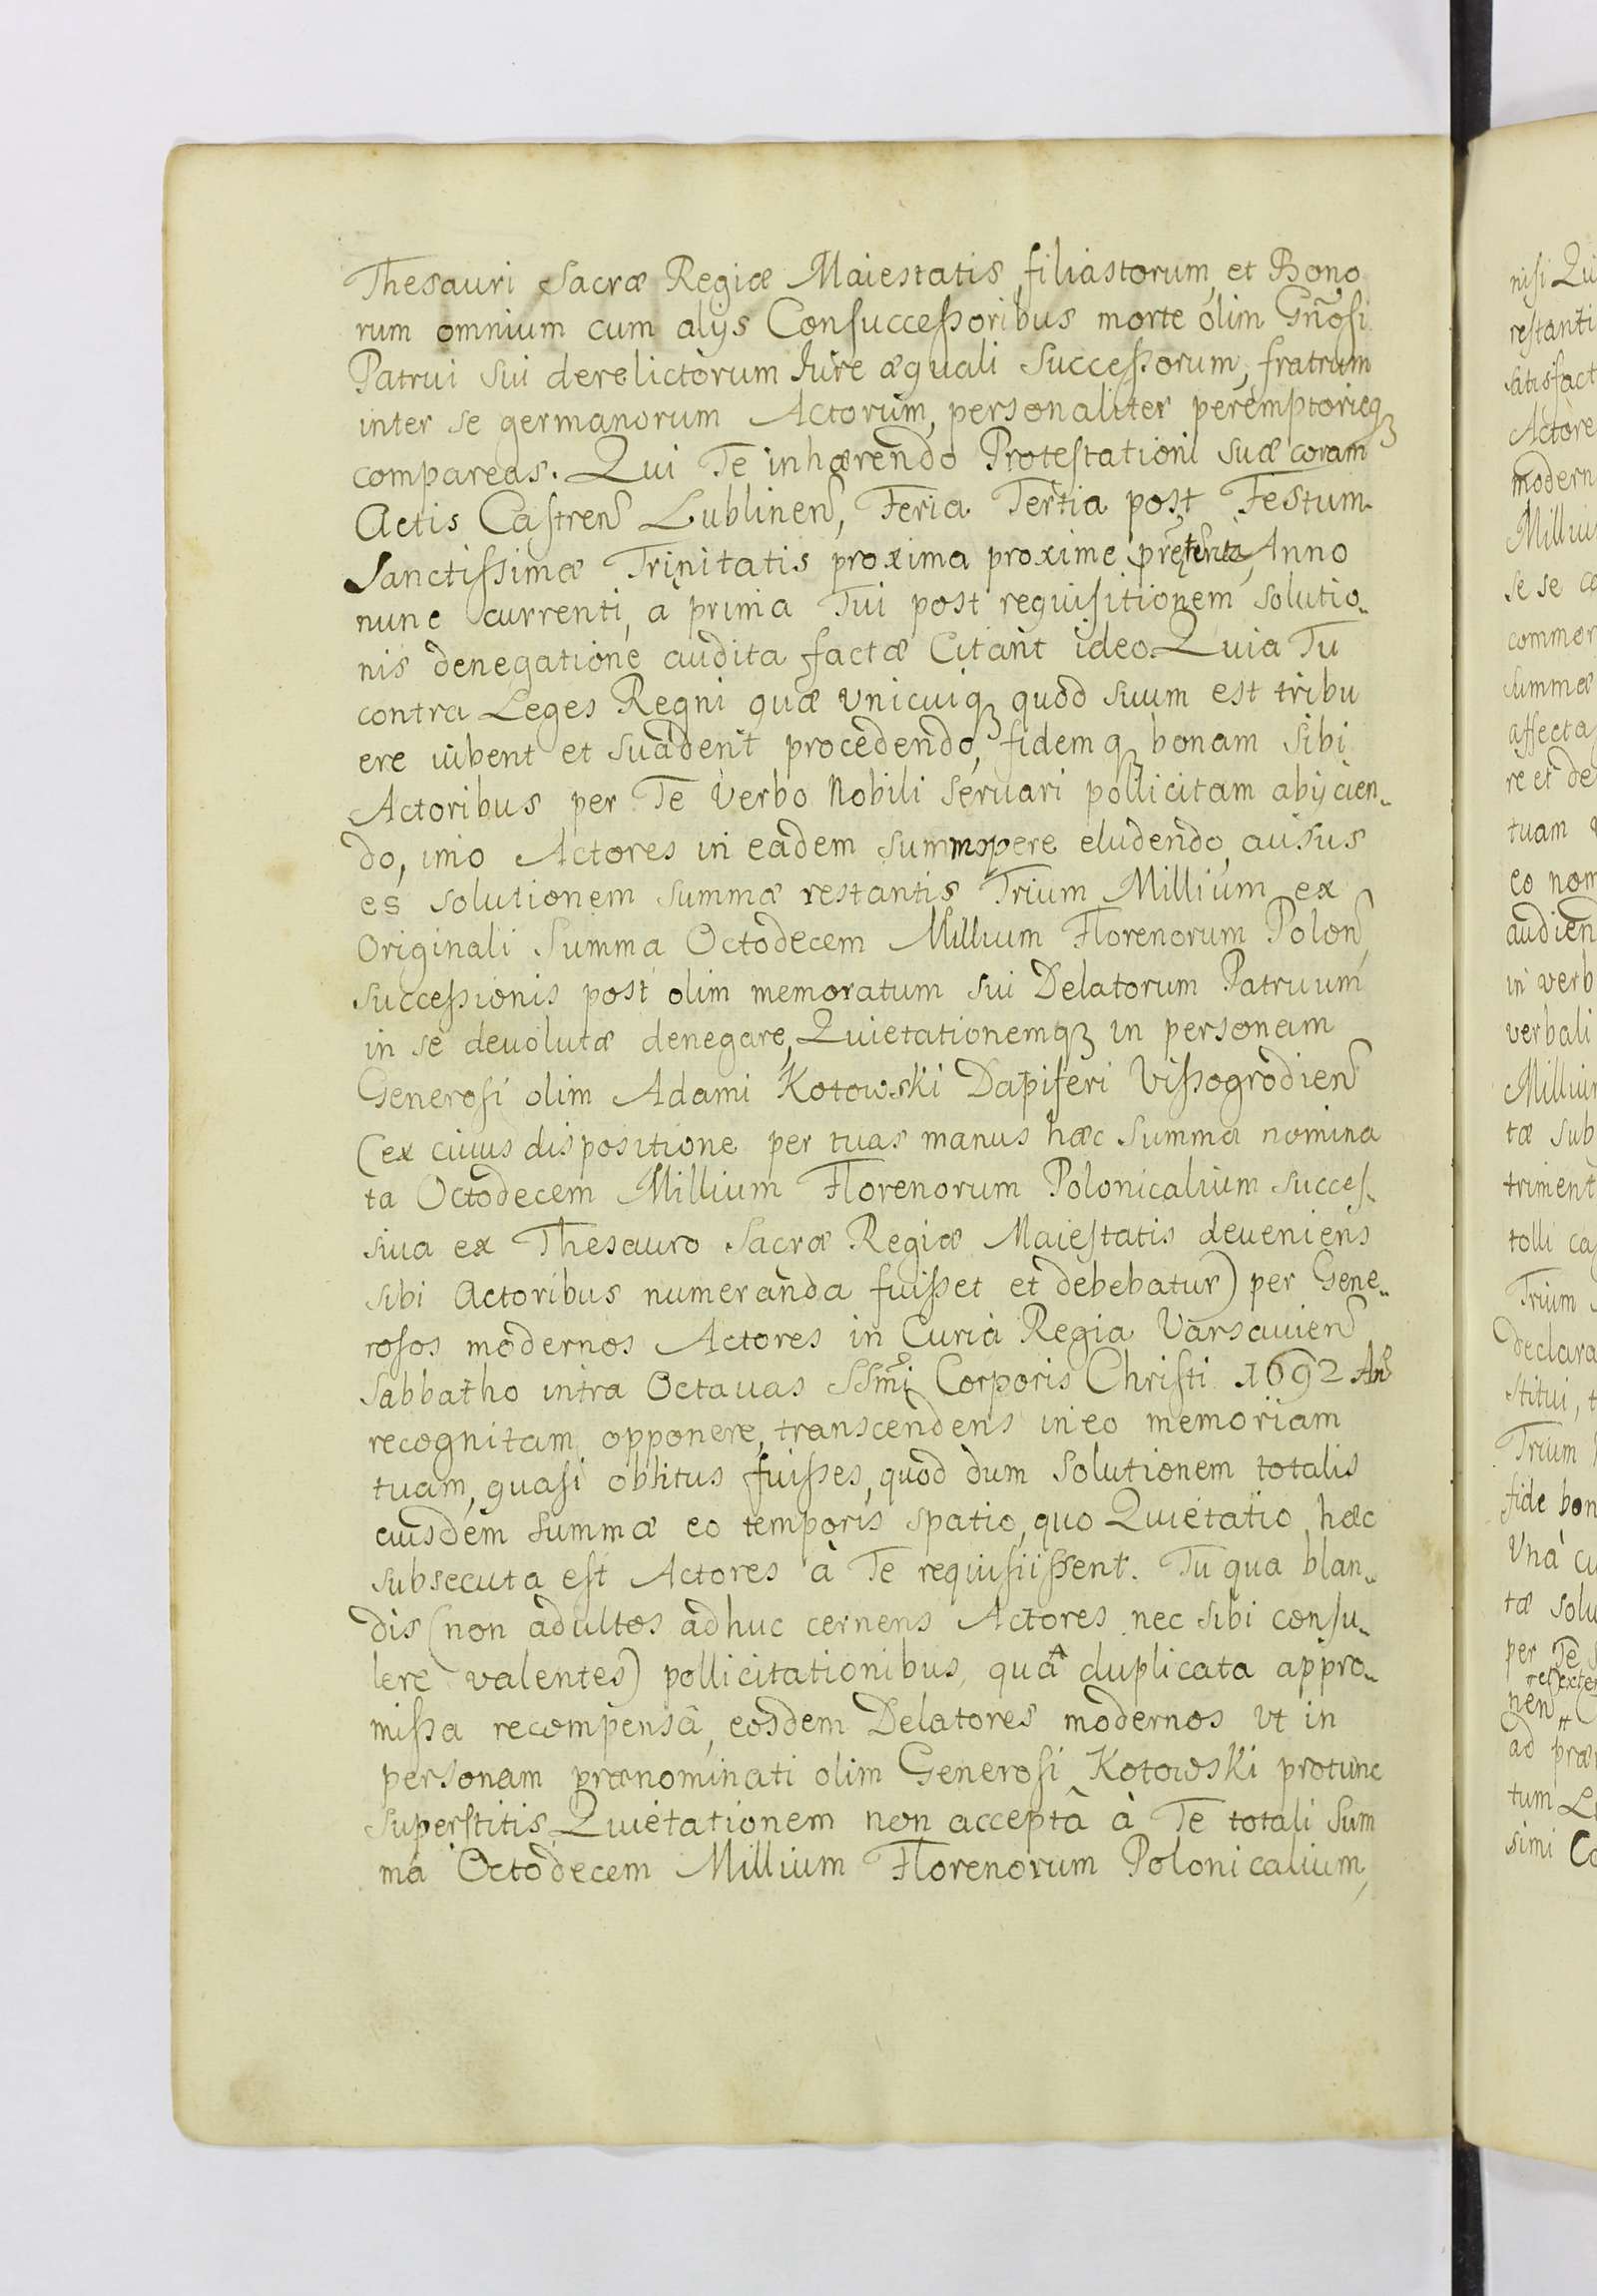 Thesauri Sacræ Regiæ Maiestatis, filiastorum, et Bono
rum omnium cum alÿs Consuccessoribus morte olim Gñosi
Patrui sui derelictorum Iure æquali Successorum, fratrum
inter se germanorum Actorum, personaliter peremptorieqꝫ
compareas. Qui Te inhærendo Protestationi suæ coram
Actis Castren Lublinen, Feria Tertia post Festum
Sanctissimæ Trinitatis proxima proxime Anno
nunc currenti, à prima Tui post requisitionem solutio„
nis denegatione audita factæ Citant ideo. Quia Tu
contra Leges Regni quæ vnicuiqꝫ quod suum est tribu
ere iubent et suadent procedendo, fidemqꝫ bonam sibi
Actoribus per Te Verbo Nobili Seruari pollicitam abÿcien„
do, imo Actores in eadem summopere eludendo, ausus
es solutionem summæ restantis Trium Millium ex
Originali Summa Octodecem Millium Florenorum Polon,
successionis post olim memoratum sui Delatorum Patruum
in se deuolutæ denegare, Quietationemqꝫ in personam
Generosi olim Adami Kotowski Dapiferi Vissogrodien
(ex cuius dispositione per tuas manus hæc Summa nomina
ta Octodecem Millium Florenorum Polonicalium succes„
siua ex Thesauro Sacræ Regiæ Maiestatis deueniens
sibi Actoribus numeranda fuisset et debebatur) per Gene„
rosos modernos Actores in Curia Regia Varsauien
Sabbatho intra Octauas SSmi Corporis Christi 1692 An
recognitam opponere, transcendens in eo memoriam
tuam, quasi oblitus fuisses, quod dum Solutionem totalis
eiusdem Summæ eo temporis spatio, quo Quietatio hæc
subsecuta est Actores à Te requisiissent. Tu qua blan„
dis (non adultos adhuc cernens Actores nec sibi consu„
lere valentes) pollicitationibus, quâ duplicata appro„
missa recompensâ, eosdem Delatores modernos vt in
personam prænominati olim Generosi Kotowski protunc
superstitis Quietationem non acceptâ à Te totali Sum
ma Octodecem Millium Florenorum Polonicalium,
nisi Qui
restanti
satisfact
Actore
modern
Milliu
se se co
commor
summæ
affecta
re et de
tuam
eo nom
audien
in verb
verbali
Milliu
tæ sub
triment
tolli ca
Trium
declara
stitui, t
Trium
fide bon
Vnà cu
tæ solu
per Te
nen
ad præ
tum L
simi Co